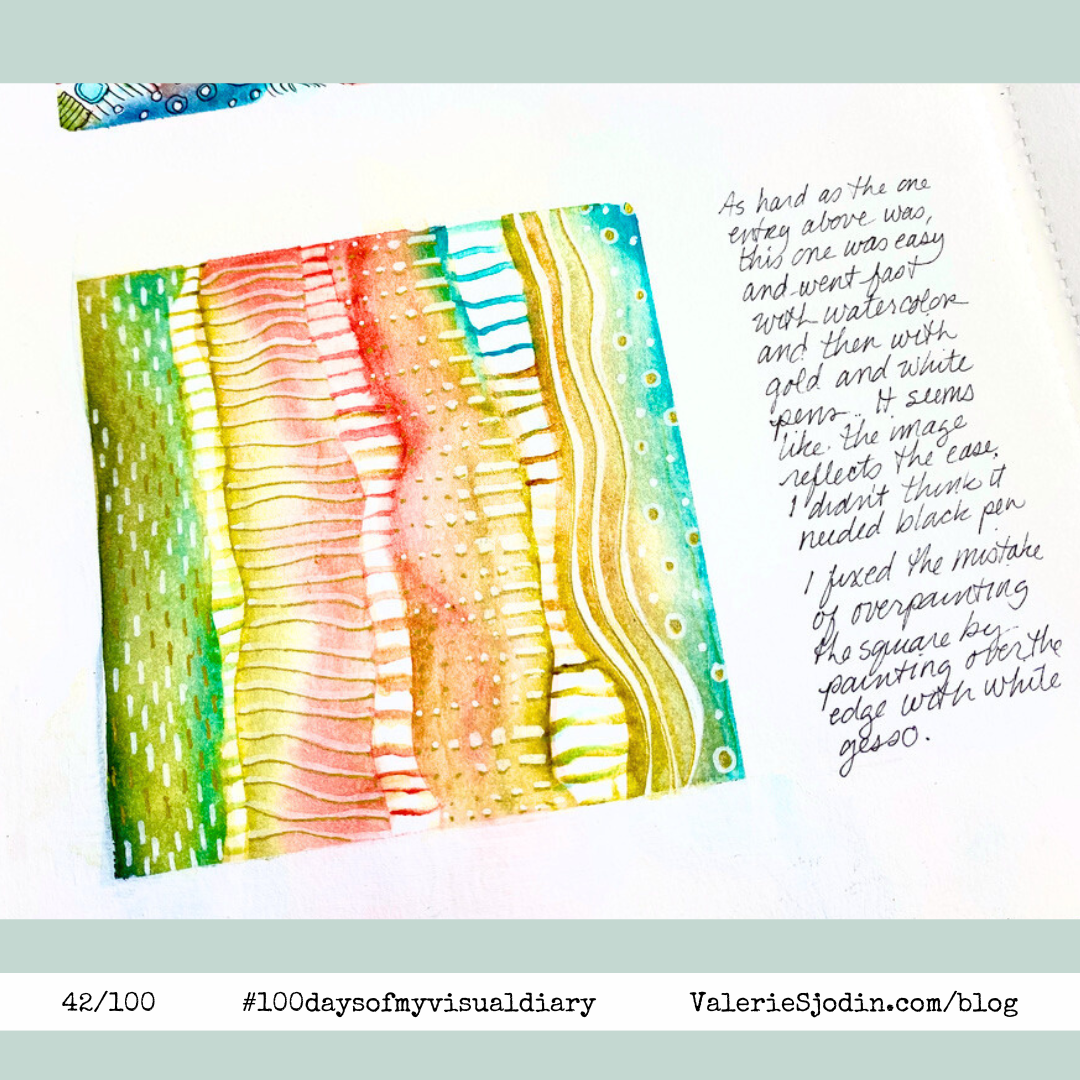 As hard as the one
entry above was,
this one was easy
and went fast
with watercolor
and then with
gold and white
pens.. It seems
like the image
reflects the ease.
I didn't think it
needed black pen
I fixed the mistake
of overpainting
the square by
painting over the
edge with white
gesso.
42/100 #100daysofmyvisualdiary ValerieSjodin.com/blog